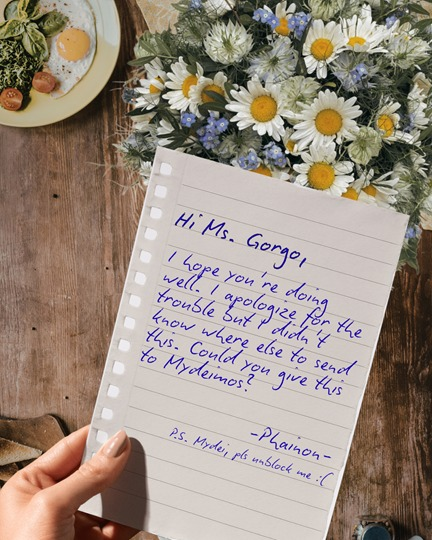 Hi Ms. Gorgo,
I hope you're doing
well. I apologize for the
trouble but I didn't
know where else to send
this. Could you give this
to Mydeimos?
-Phainon-
P.S. Mydei, pls unblock me :(